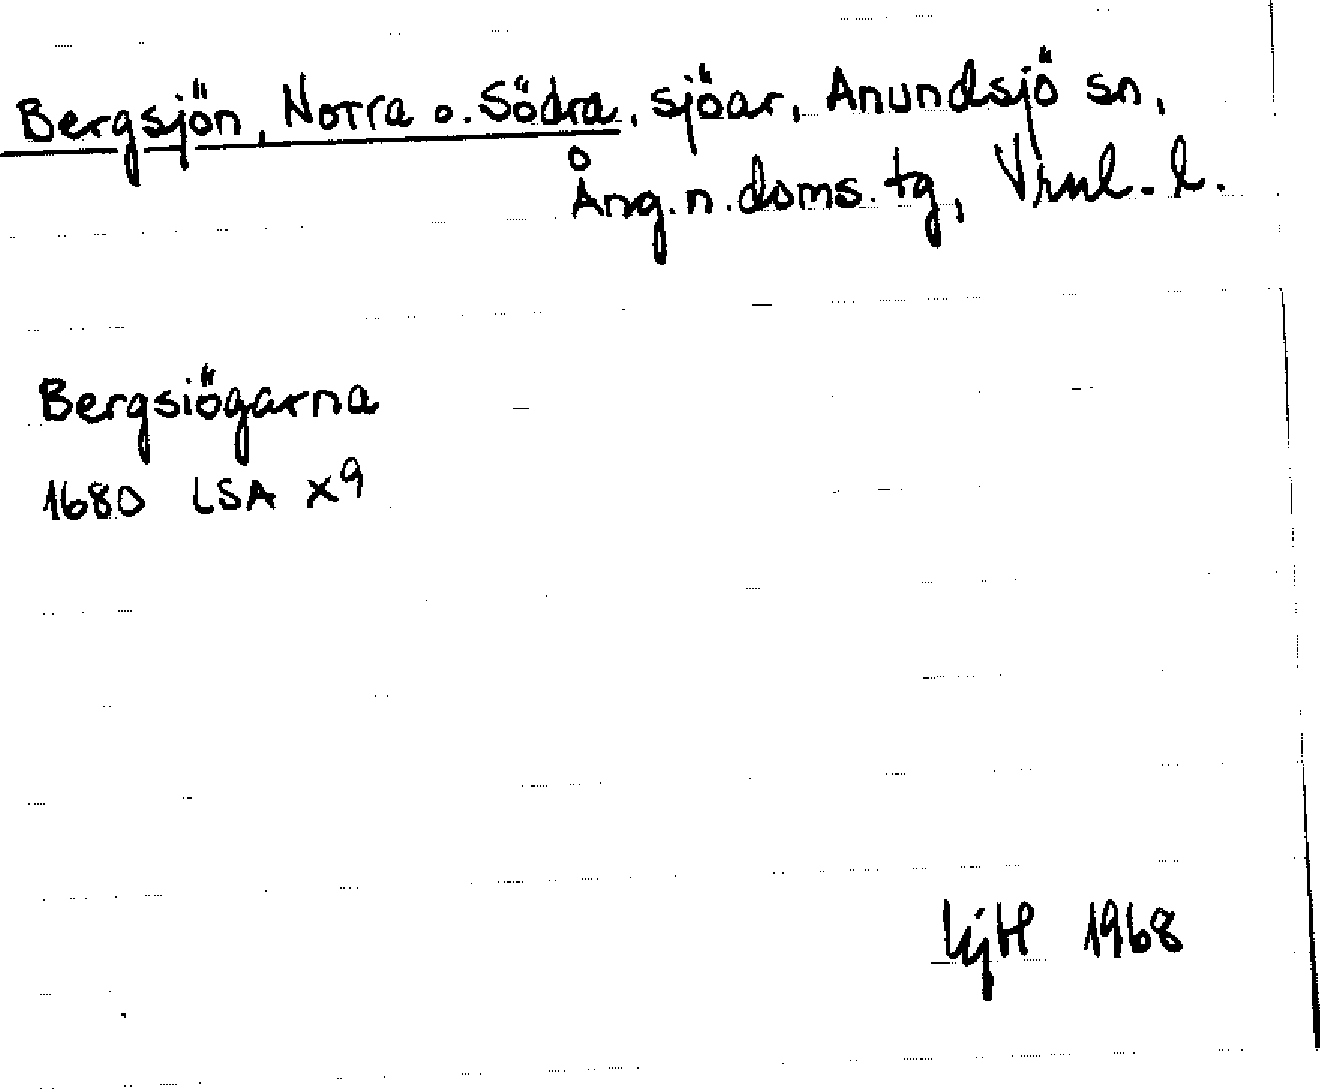 Bergsjön, Norra o. Södra, sjöar, Anundsjö sn,
Ång. n. doms. tg, Vrnl. l.
Bergsiögarna
1680 LSA X9
1968